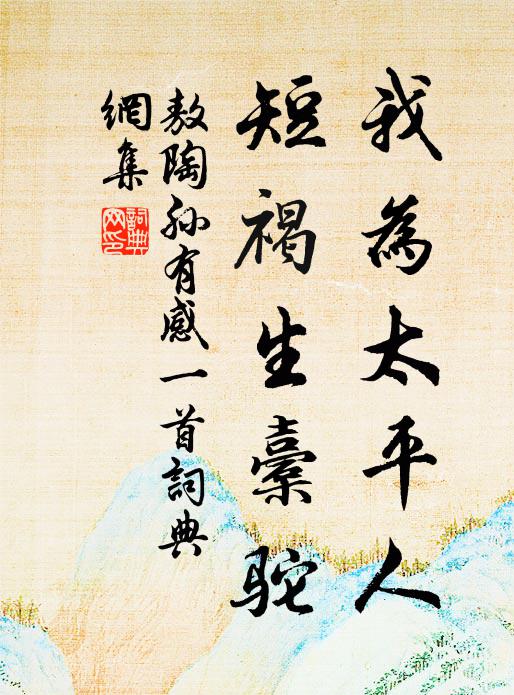 我為太平人
短褐生橐駝
敖陶孫有感一首詞典
網集
詞典
网印